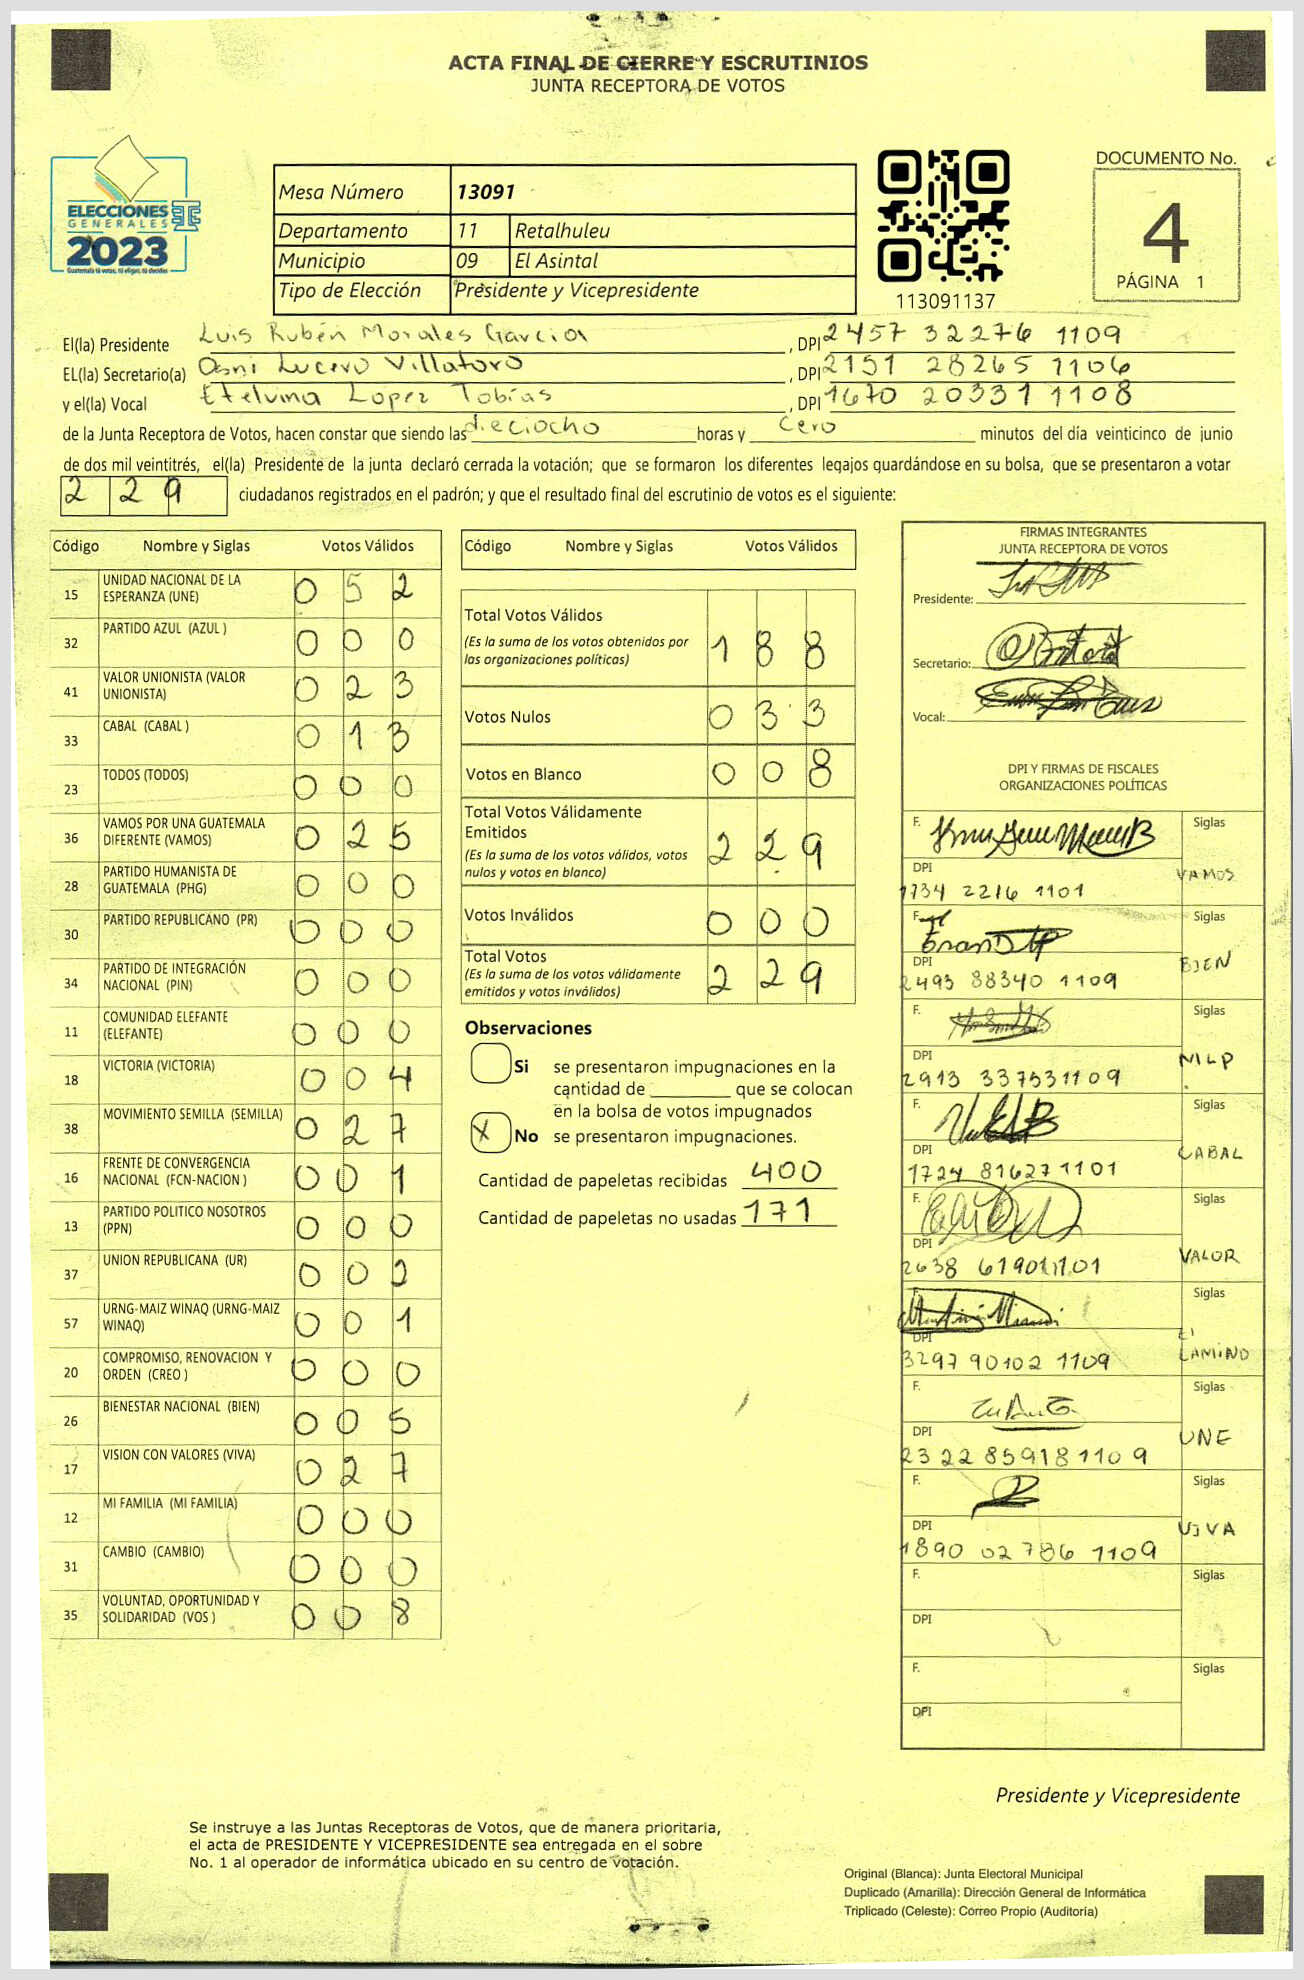 ACTA FINAL DE CIERRE Y ESCRUTINIOS
JUNTA RECEPTORA DE VOTOS
ELECCIONES
GENERALES
2023
Guatemala tú votas, tú eliges, tú decides
Mesa Número 13091
Departamento 11 Retalhuleu
Municipio 09 El Asintal
Tipo de Elección Presidente y Vicepresidente
113091137
DOCUMENTO No.
4
PÁGINA 1
El(la) Presidente Luis Rubén Morales Garcia, DPI 2457 32276 1109
EL(la) Secretario(a) Osni Lucero Villatoro, DPI 2151 28265 1106
y el(la) Vocal Etelvina Lopez Tobías, DPI 1670 20331 1108
de la Junta Receptora de Votos, hacen constar que siendo las dieciocho horas y cero minutos del día veinticinco de junio
de dos mil veintitrés, el(la) Presidente de la junta declaró cerrada la votación; que se formaron los diferentes legajos guardándose en su bolsa, que se presentaron a votar
2 2 9 ciudadanos registrados en el padrón; y que el resultado final del escrutinio de votos es el siguiente:
Código Nombre y Siglas Votos Válidos
15 UNIDAD NACIONAL DE LA ESPERANZA (UNE) 0 5 2
32 PARTIDO AZUL (AZUL ) 0 0 0
41 VALOR UNIONISTA (VALOR UNIONISTA) 0 2 3
33 CABAL (CABAL ) 0 1 3
23 TODOS (TODOS) 0 0 0
36 VAMOS POR UNA GUATEMALA DIFERENTE (VAMOS) 0 2 5
28 PARTIDO HUMANISTA DE GUATEMALA (PHG) 0 0 0
30 PARTIDO REPUBLICANO (PR) 0 0 0
34 PARTIDO DE INTEGRACIÓN NACIONAL (PIN) 0 0 0
11 COMUNIDAD ELEFANTE (ELEFANTE) 0 0 0
18 VICTORIA (VICTORIA) 0 0 4
38 MOVIMIENTO SEMILLA (SEMILLA) 0 2 7
16 FRENTE DE CONVERGENCIA NACIONAL (FCN-NACION ) 0 0 1
13 PARTIDO POLITICO NOSOTROS (PPN) 0 0 0
37 UNION REPUBLICANA (UR) 0 0 2
57 URNG-MAIZ WINAQ (URNG-MAIZ WINAQ) 0 0 1
20 COMPROMISO, RENOVACION Y ORDEN (CREO ) 0 0 0
26 BIENESTAR NACIONAL (BIEN) 0 0 5
17 VISION CON VALORES (VIVA) 0 2 7
12 MI FAMILIA (MI FAMILIA) 0 0 0
31 CAMBIO (CAMBIO) 0 0 0
35 VOLUNTAD, OPORTUNIDAD Y SOLIDARIDAD (VOS ) 0 0 8
Código Nombre y Siglas Votos Válidos
Total Votos Válidos 1 8 8
(Es la suma de los votos obtenidos por
las organizaciones políticas)
Votos Nulos 0 3 3
Votos en Blanco 0 0 8
Total Votos Válidamente
Emitidos 2 2 9
(Es la suma de los votos válidos, votos
nulos y votos en blanco)
Votos Inválidos 0 0 0
Total Votos 2 2 9
(Es la suma de los votos válidamente
emitidos y votos inválidos)
Observaciones
Si se presentaron impugnaciones en la
cantidad de ________ que se colocan
en la bolsa de votos impugnados
X No se presentaron impugnaciones.
Cantidad de papeletas recibidas 400
Cantidad de papeletas no usadas 171
FIRMAS INTEGRANTES
JUNTA RECEPTORA DE VOTOS
Presidente:
Secretario:
Vocal:
DPI Y FIRMAS DE FISCALES
ORGANIZACIONES POLÍTICAS
F. Siglas
DPI VAMOS
1734 2216 1101
F. Siglas
DPI BIEN
2493 88340 1109
F. Siglas
DPI MLP
2913 33753 1109
F. Siglas
DPI CABAL
1724 81627 1101
F. Siglas
DPI VALOR
2638 61901 1101
F. Siglas
DPI El CAMINO
3297 90102 1109
F. Siglas
DPI UNE
2322 85918 1109
F. Siglas
DPI VIVA
1890 02786 1109
F. Siglas
DPI
F. Siglas
DPI
Presidente y Vicepresidente
Se instruye a las Juntas Receptoras de Votos, que de manera prioritaria,
el acta de PRESIDENTE Y VICEPRESIDENTE sea entregada en el sobre
No. 1 al operador de informática ubicado en su centro de votación.
Original (Blanca): Junta Electoral Municipal
Duplicado (Amarilla): Dirección General de Informática
Triplicado (Celeste): Correo Propio (Auditoría)